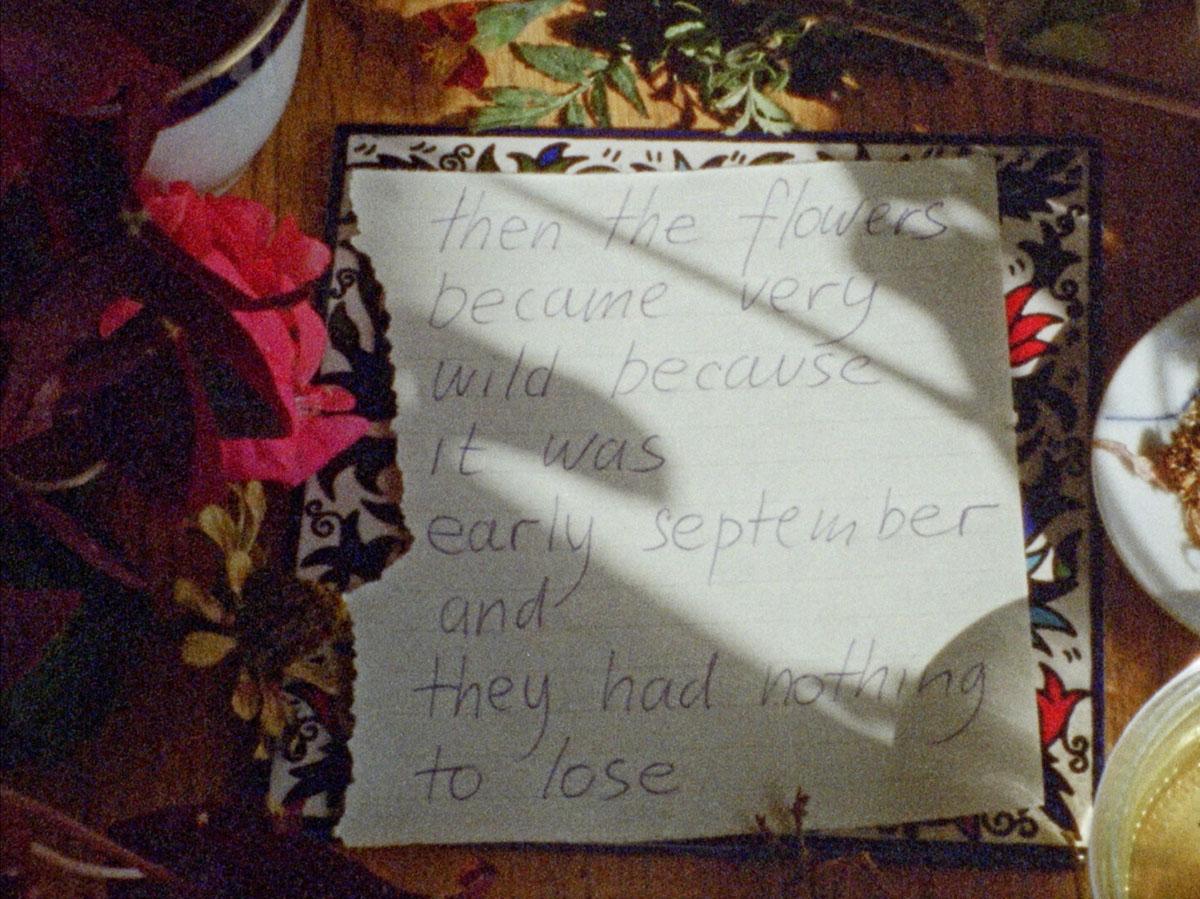 then the flowers
became very
wild because
it was
early september
and
they had nothing
to lose